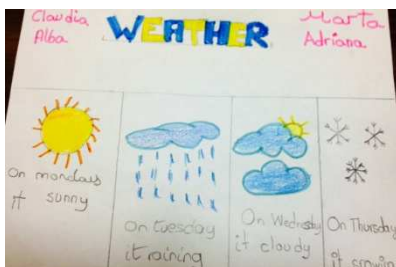 Claudia
Alba
WEATHER
Marta
Adriana
On mondays
it sunny
On tuesday
it raining
On Wednesday
it cloudy
On Thursday
it